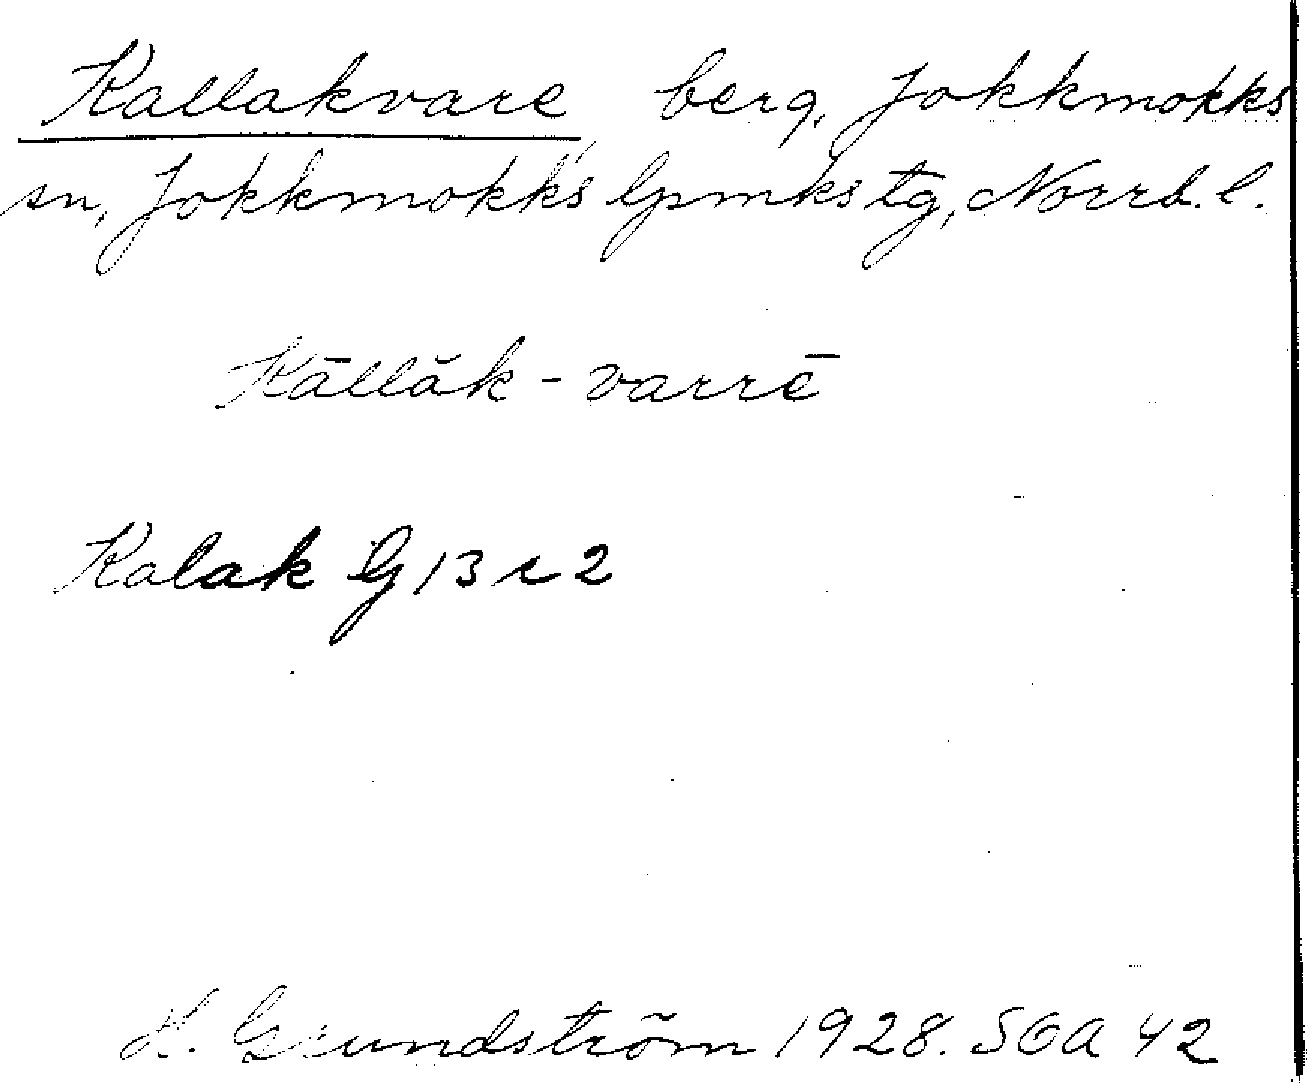 Kallakvare berg, Jokkmokks
sn, Jokkmokks lpmks tg, Norrb. l.
Kāllăk - varrē
Kalak G 13 r 2
H. Grundström 1928. SOA 42